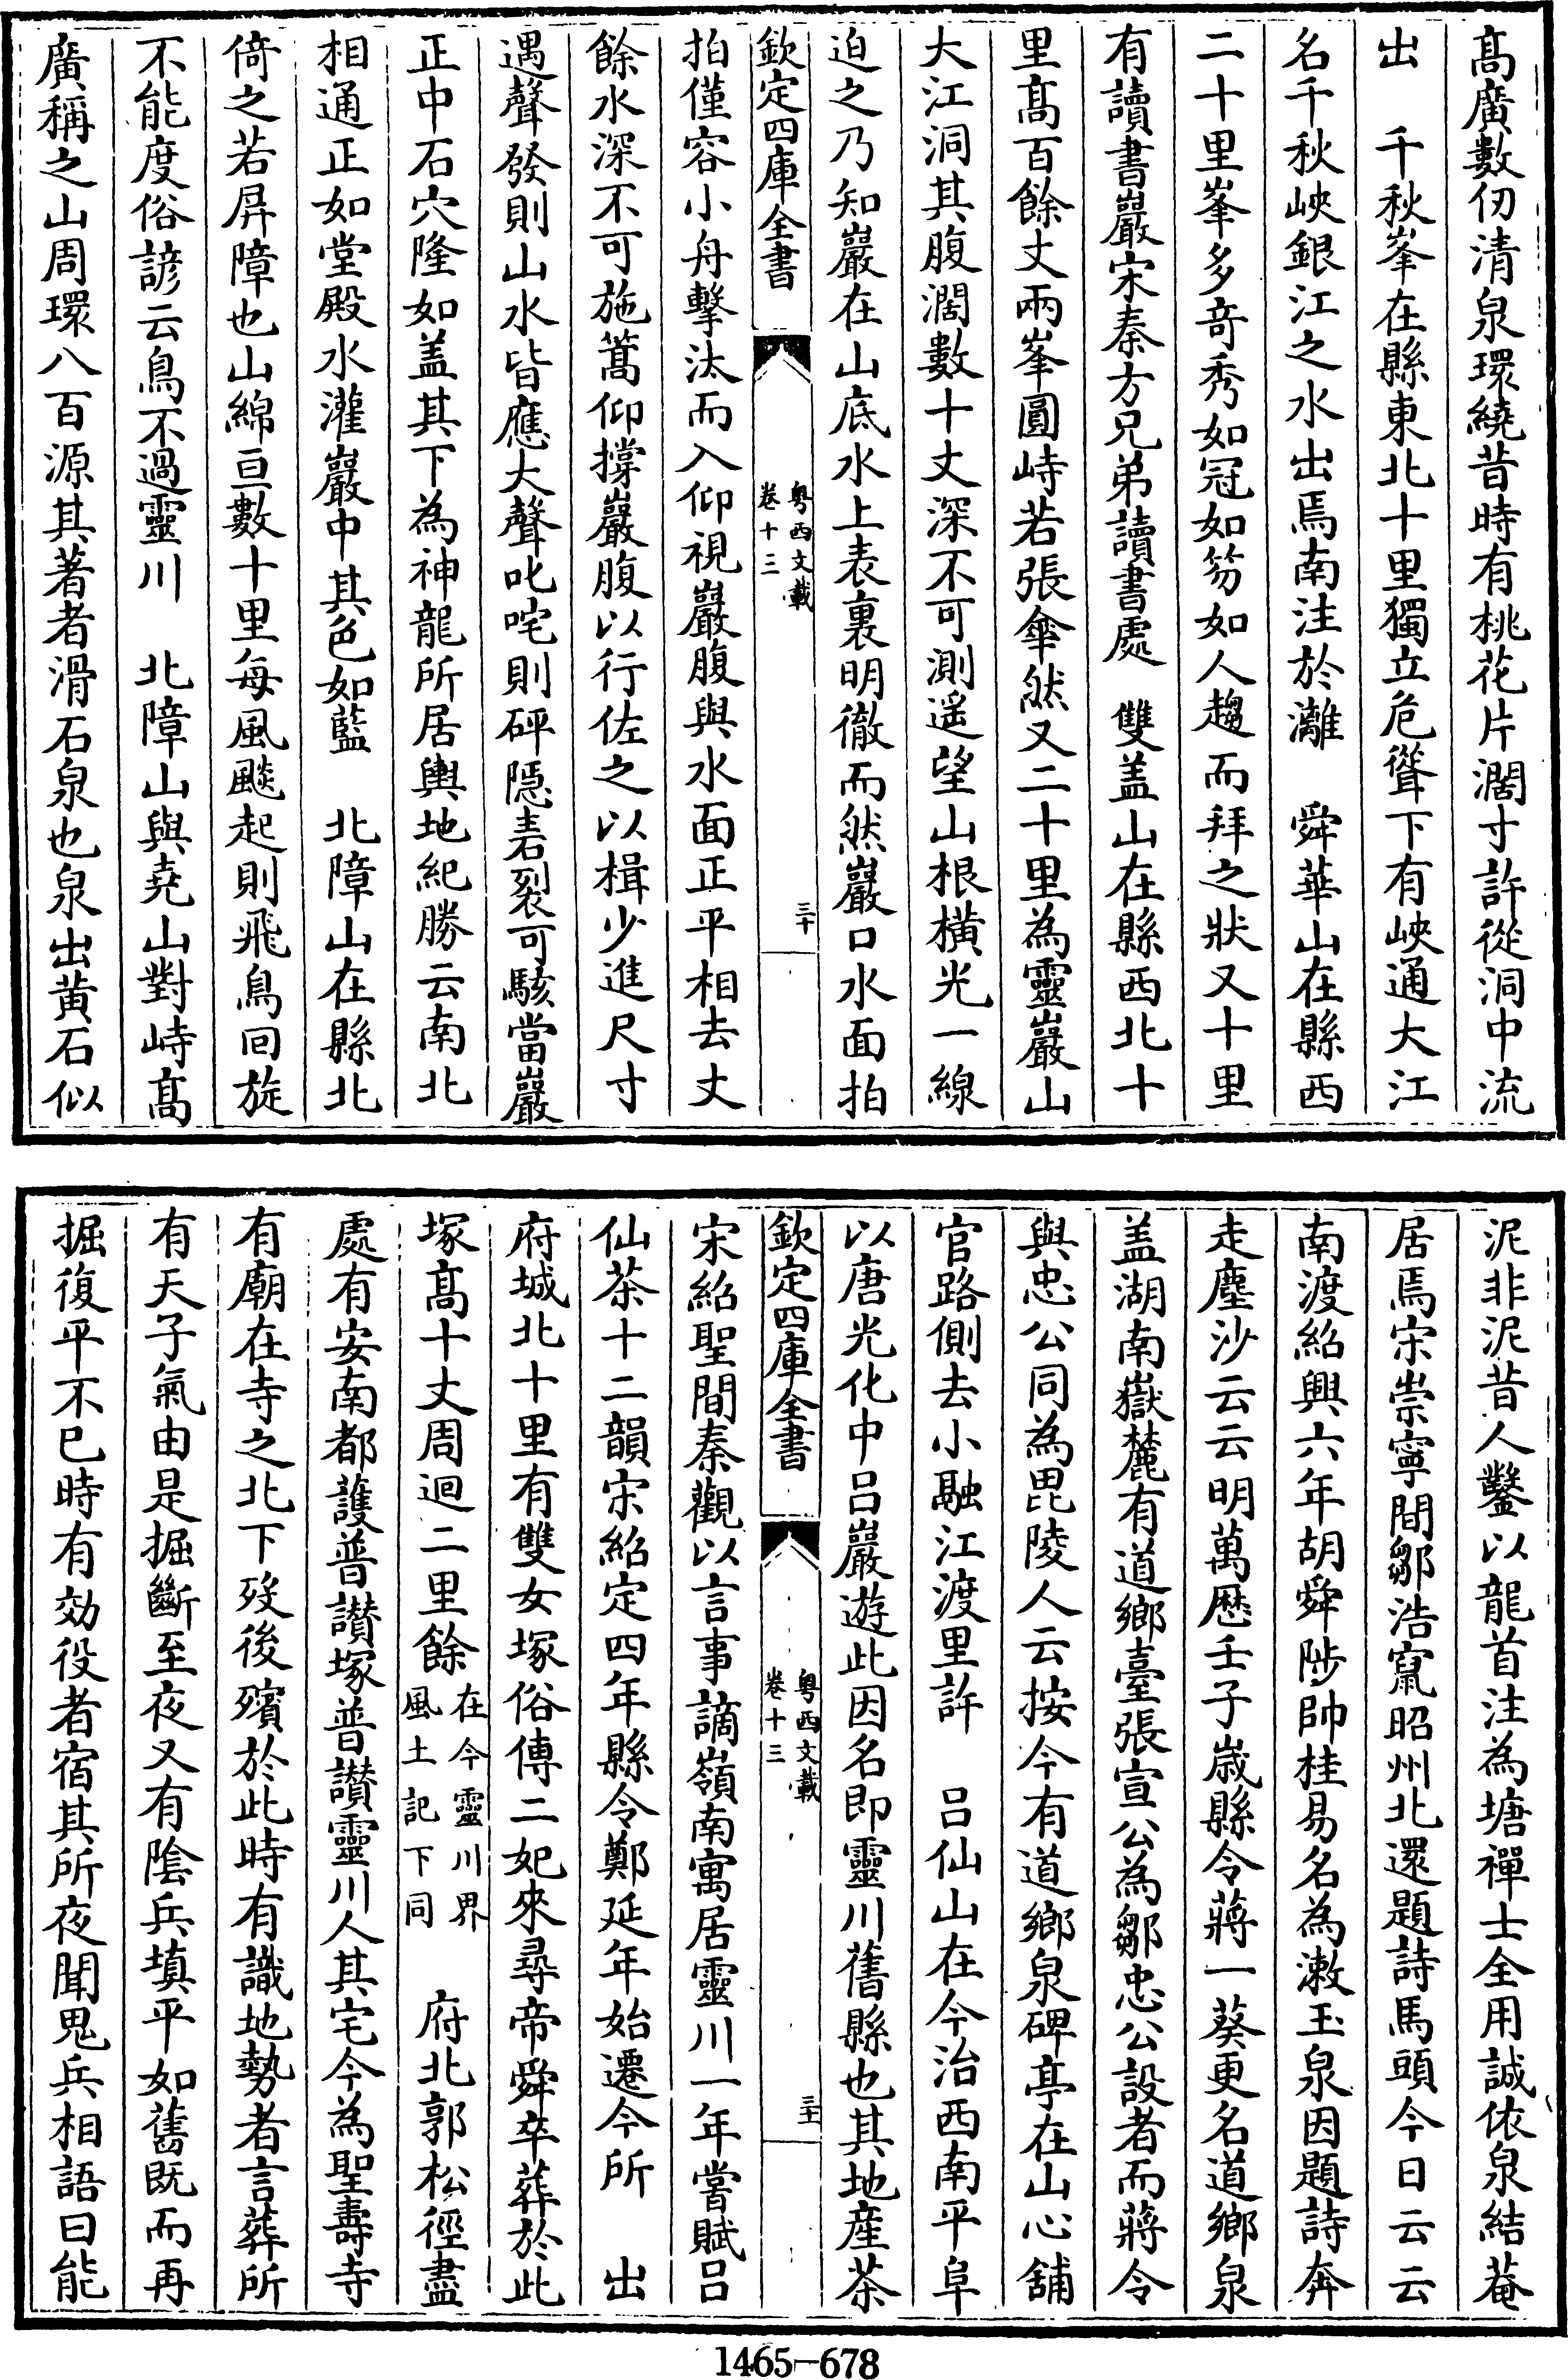 高廣數仞清泉環繞昔時有桃花片濶寸許從洞中流
出　千秋峯在縣東北十里獨立危聳下有峽通大江
名千秋峽銀江之水出焉南注於灕　舜華山在縣西
二十里峯多竒秀如冠如笏如人趨而拜之狀又十里
有讀書巖宋秦方兄弟讀書處　雙盖山在縣西北十
里髙百餘丈兩峯圓峙若張傘然又二十里為靈巖山
大江洞其腹濶數十丈深不可測遥望山根横光一線
迫之乃知巖在山底水上表裏明徹而然巖口水面拍
欽定四庫全書
粤西文載
卷十三
三十
拍僅容小舟擊汰而入仰視巖腹與水面正平相去丈
餘水深不可施篙仰撐巖腹以行佐之以楫少進尺寸
遇聲發則山水皆應大聲叱咤則砰隠砉裂可駭當巖
正中石穴隆如盖其下為神龍所居輿地紀勝云南北
相通正如堂殿水灌巖中其色如藍　北障山在縣北
倚之若屏障也山綿亘數十里每風颷起則飛鳥回旋
不能度俗諺云鳥不過靈川　北障山與堯山對峙髙
廣稱之山周環八百源其著者滑石泉也泉出黄石似
泥非泥昔人鑿以龍首注為塘禪士全用誠依泉結菴
居焉宋崇寧間鄒浩竄昭州北還題詩馬頭今日云云
南渡紹興六年胡舜陟帥桂易名為漱玉泉因題詩奔
走塵沙云云明萬厯壬子歳縣令蔣一葵更名道鄉泉
盖湖南嶽麓有道鄉臺張宣公為鄒忠公設者而蔣令
與忠公同為毘陵人云按今有道鄉泉碑亭在山心舖
官路側去小融江渡里許　吕仙山在今治西南平阜
以唐光化中吕巖遊此因名即靈川舊縣也其地産茶
欽定四庫全書
粤西文載
卷十三
三十一
宋紹聖間秦觀以言事謫嶺南寓居靈川一年嘗賦吕
仙茶十二韻宋紹定四年縣令鄭延年始遷今所　出
府城北十里有雙女塚俗傳二妃來尋帝舜卒葬於此
塚髙十丈周迴二里餘在今靈川界風土記下同　府北郭松徑盡
處有安南都護普讃塚普讃靈川人其宅今為聖壽寺
有廟在寺之北下歿後殯於此時有識地勢者言葬所
有天子氣由是掘斷至夜又有隂兵填平如舊既而再
掘復平不已時有効役者宿其所夜聞鬼兵相語曰能
1465-678